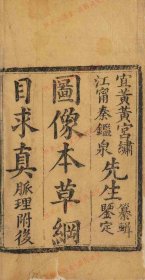 宜黃黃宮繡
江甯秦鑑泉
先生
纂輯
鑒定
圖像本草綱
目求真 脈理附後